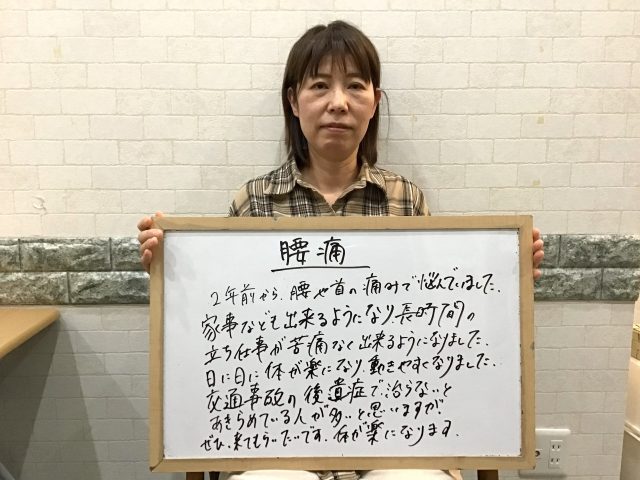 腰痛
2年前から、腰や首の痛みで悩んでいました。
家事なども出来るようになり、長時間の
立ち仕事が苦痛なく出来るようになりました。
日に日に体が楽になり、動きやすくなりました。
交通事故の後遺症で、治らないと
あきらめている人が多いと思いますが
ぜひ、来てもらいたいです。体が楽になります。